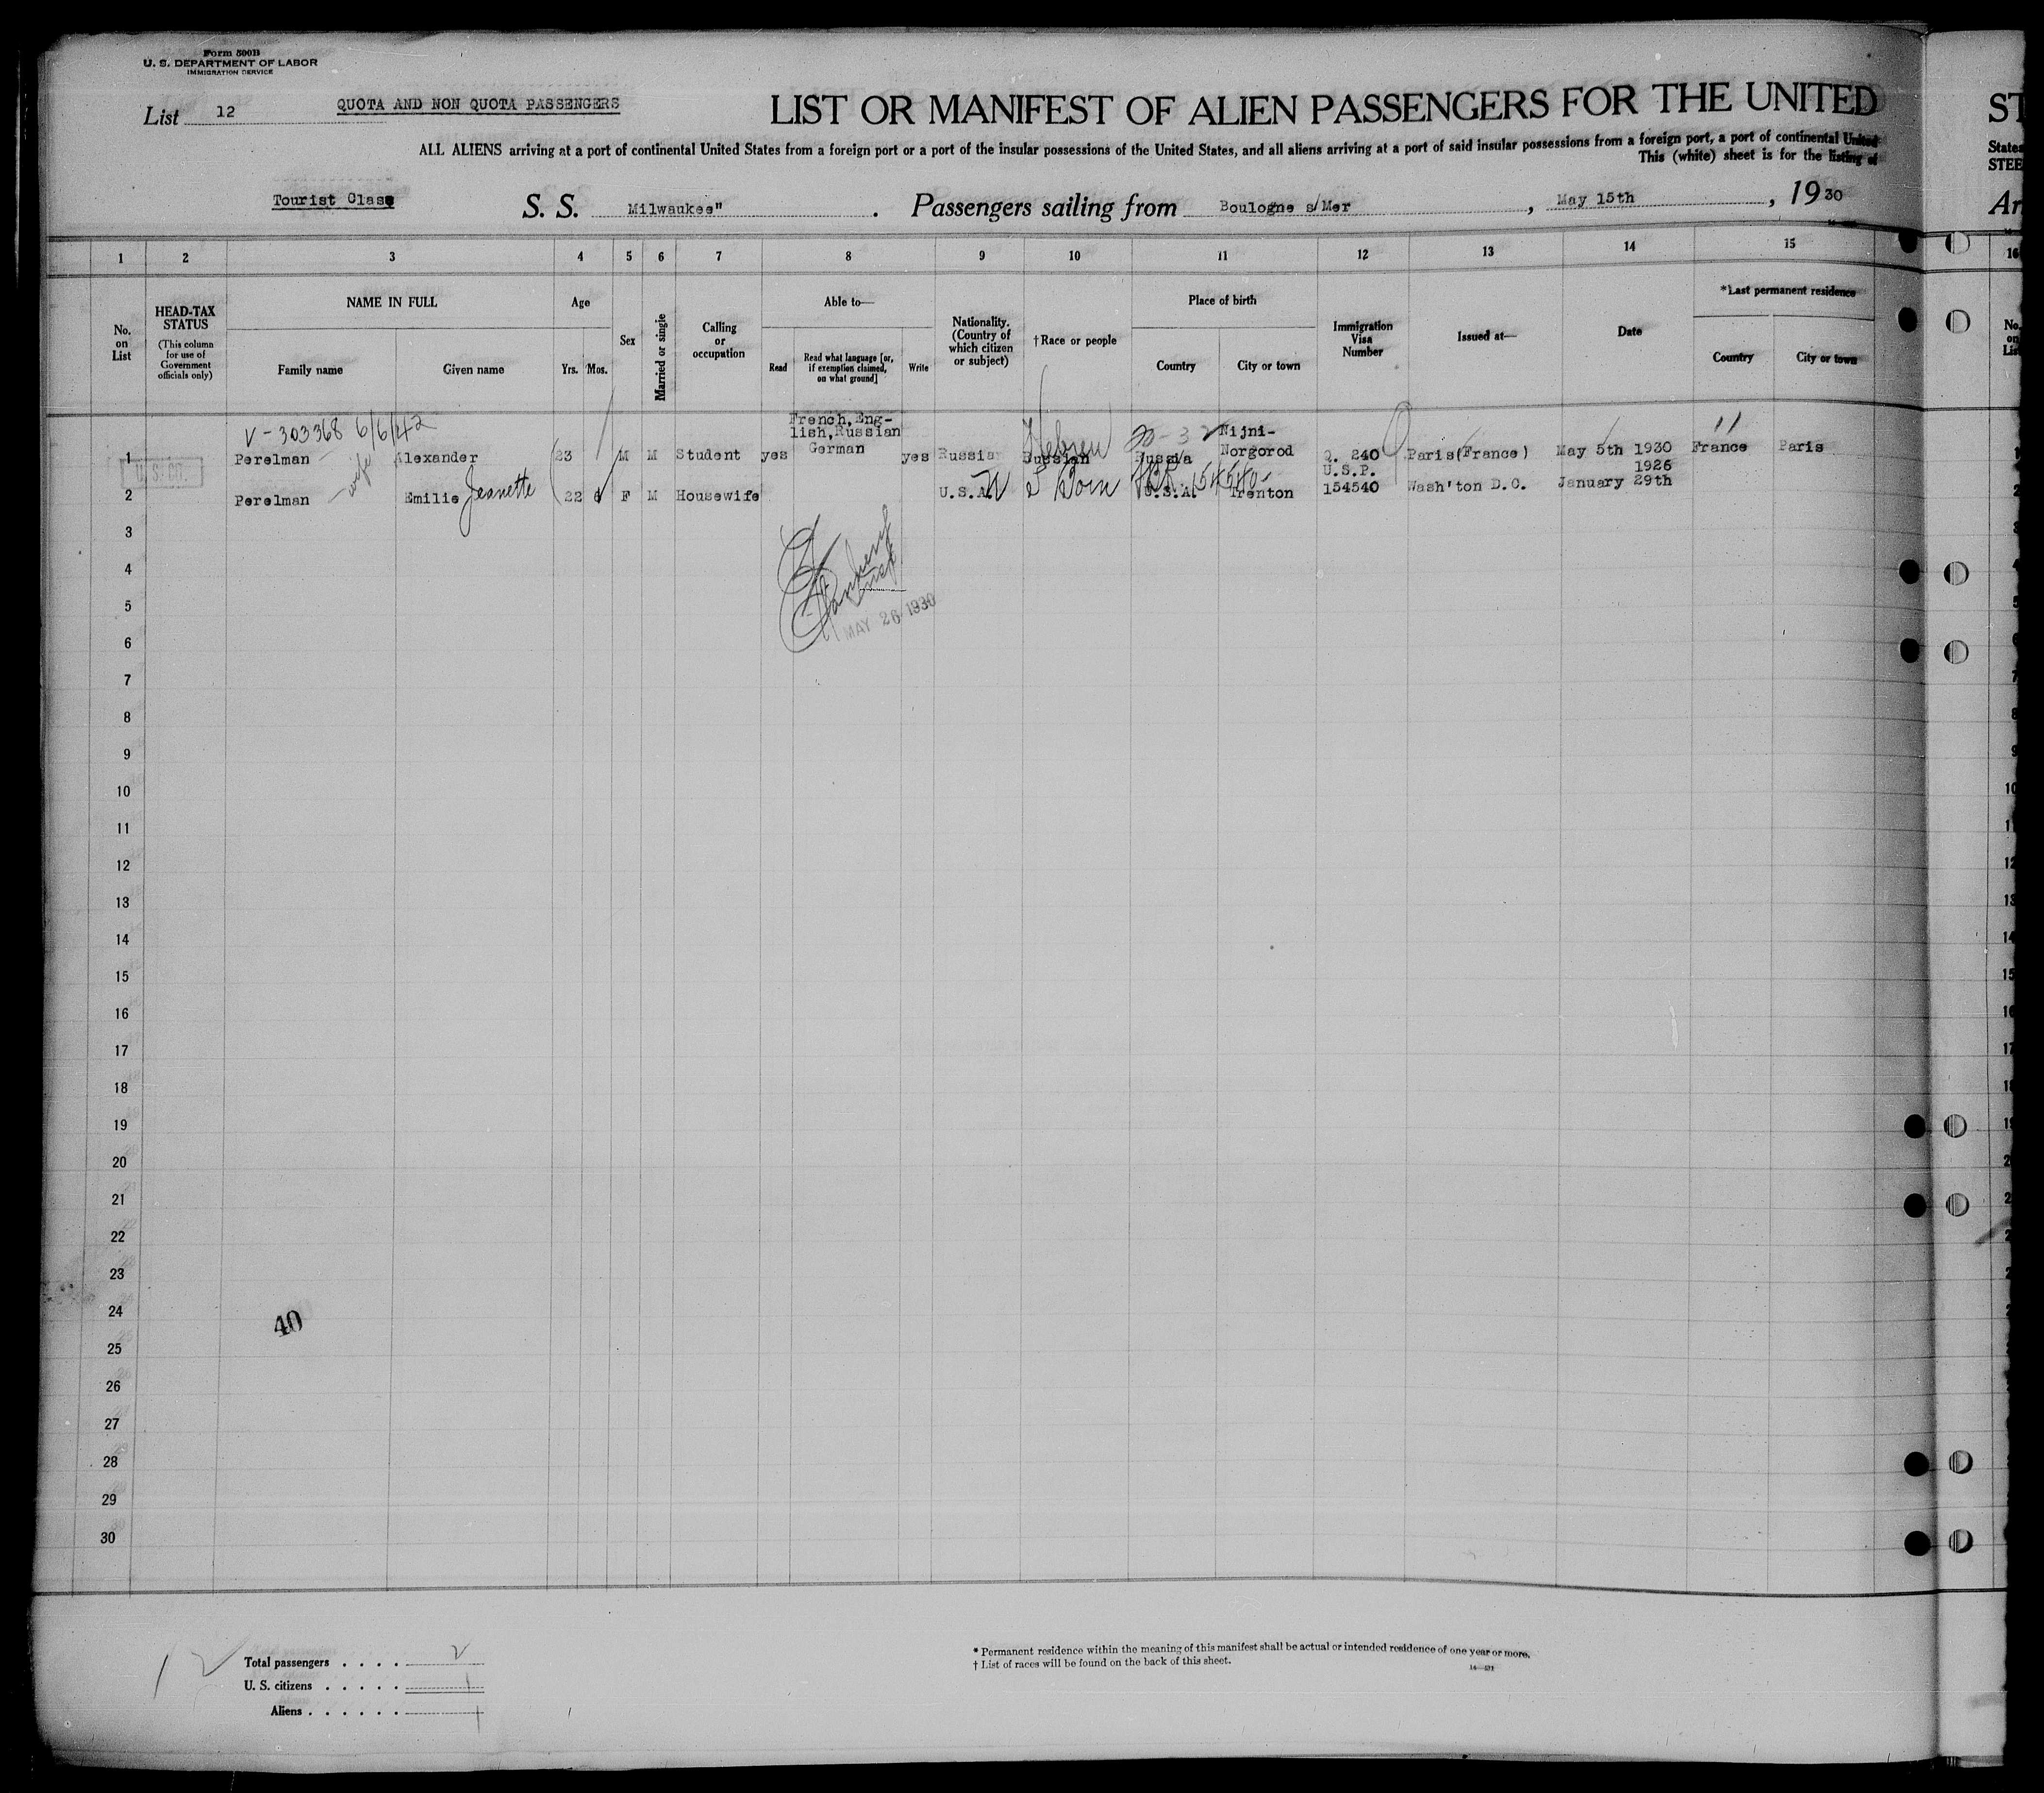 Form 500B
U. S. DEPARTMENT OF LABOR
IMMIGRATION SERVICE
List 12
QUOTA AND NON QUOTA PASSENGERS
LIST OR MANIFEST OF ALIEN PASSENGERS FOR THE UNITED
ST
ALL ALIENS arriving at a port of continental United States from a foreign port or a port of the insular possessions of the United States, and all aliens arriving at a port of said insular possessions from a foreign port, a port of continental United
States
This (white) sheet is for the listing of
STEE
Tourist Class
S. S. Milwaukee" . Passengers sailing from Boulogne s/Mer , May 15th , 19 30
Ar
1 2 3 4 5 6 7 8 9 10 11 12 13 14 15 16
No. on List
HEAD-TAX STATUS
(This column for use of Government officials only)
NAME IN FULL
Family name
Given name
Age
Yrs.
Mos.
Sex
Married or single
Calling or occupation
Able to—
Read
Read what language [or, if exemption claimed, on what ground]
Write
Nationality. (Country of which citizen or subject)
†Race or people
Place of birth
Country
City or town
Immigration Visa Number
Issued at—
Date
*Last permanent residence
Country
City or town
V-303368 6/6/42
1 Perelman Alexander 23 M M Student yes French, Eng-lish, Russian German yes Russia Hebrew Russian Russia Nijni-Norgorod Q. 240 Paris(France) May 5th 1930 France Paris
wife
2 Perelman Emilie Jeanette 22 6 F M Housewife U.S.A. Born U.S.A. 154540 Trenton U.S.P. 154540 Wash'ton D.C. January 29th 1926
U.S. CIT.
3
4
5
MAY 26 1930
6
7
8
9
10
11
12
13
14
15
16
17
18
19
20
21
22
23
24
40
25
26
27
28
29
30
12
Total passengers . . . . 2
U. S. citizens . . . . . 1
Aliens . . . . . . 1
* Permanent residence within the meaning of this manifest shall be actual or intended residence of one year or more.
† List of races will be found on the back of this sheet.